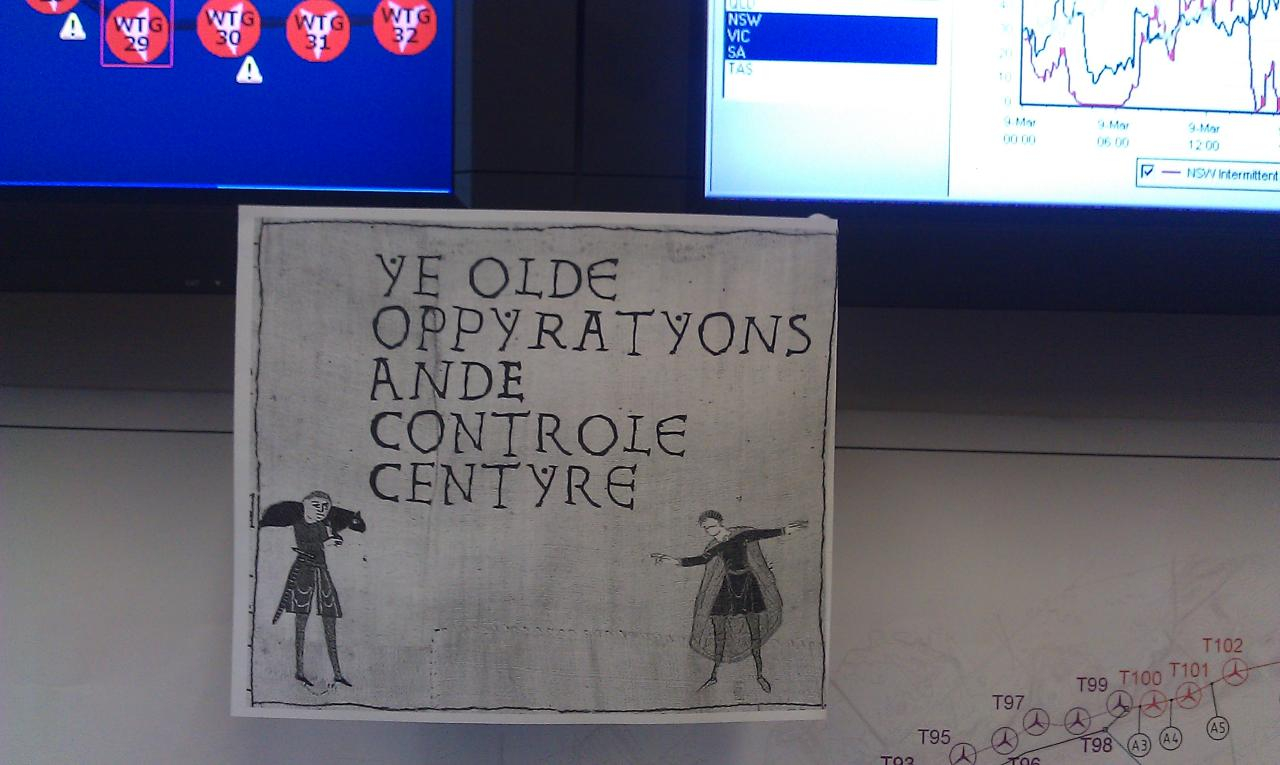 WTG 29
WTG 30
WTG 31
WTG 32
QLD
NSW
VIC
SA
TAS
40
30
20
10
0
9-Mar 00:00
9-Mar 06:00
9-Mar 12:00
NSW Intermittent
YE OLDE
OPPYRATYONS
ANDE
CONTROLE
CENTYRE
T102
T101
T100
T99
T97
T98
T95
T96
T93
A3
A4
A5